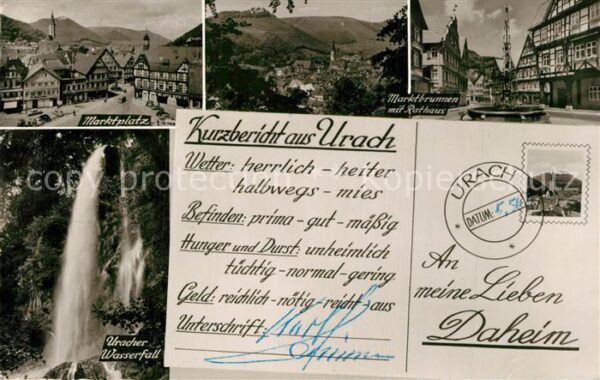 Marktplatz
Marktbrunnen
mit Rathaus
Kurzbericht aus Urach
Wetter: herrlich - heiter
halbwegs - mies
Befinden: prima - gut - mäßig
Hunger und Durst: unheimlich
tüchtig - normal - gering
Geld: reichlich - nötig - reicht aus
Unterschrift:
URACH
DATUM:
An
meine Lieben
Daheim
Uracher
Wasserfall